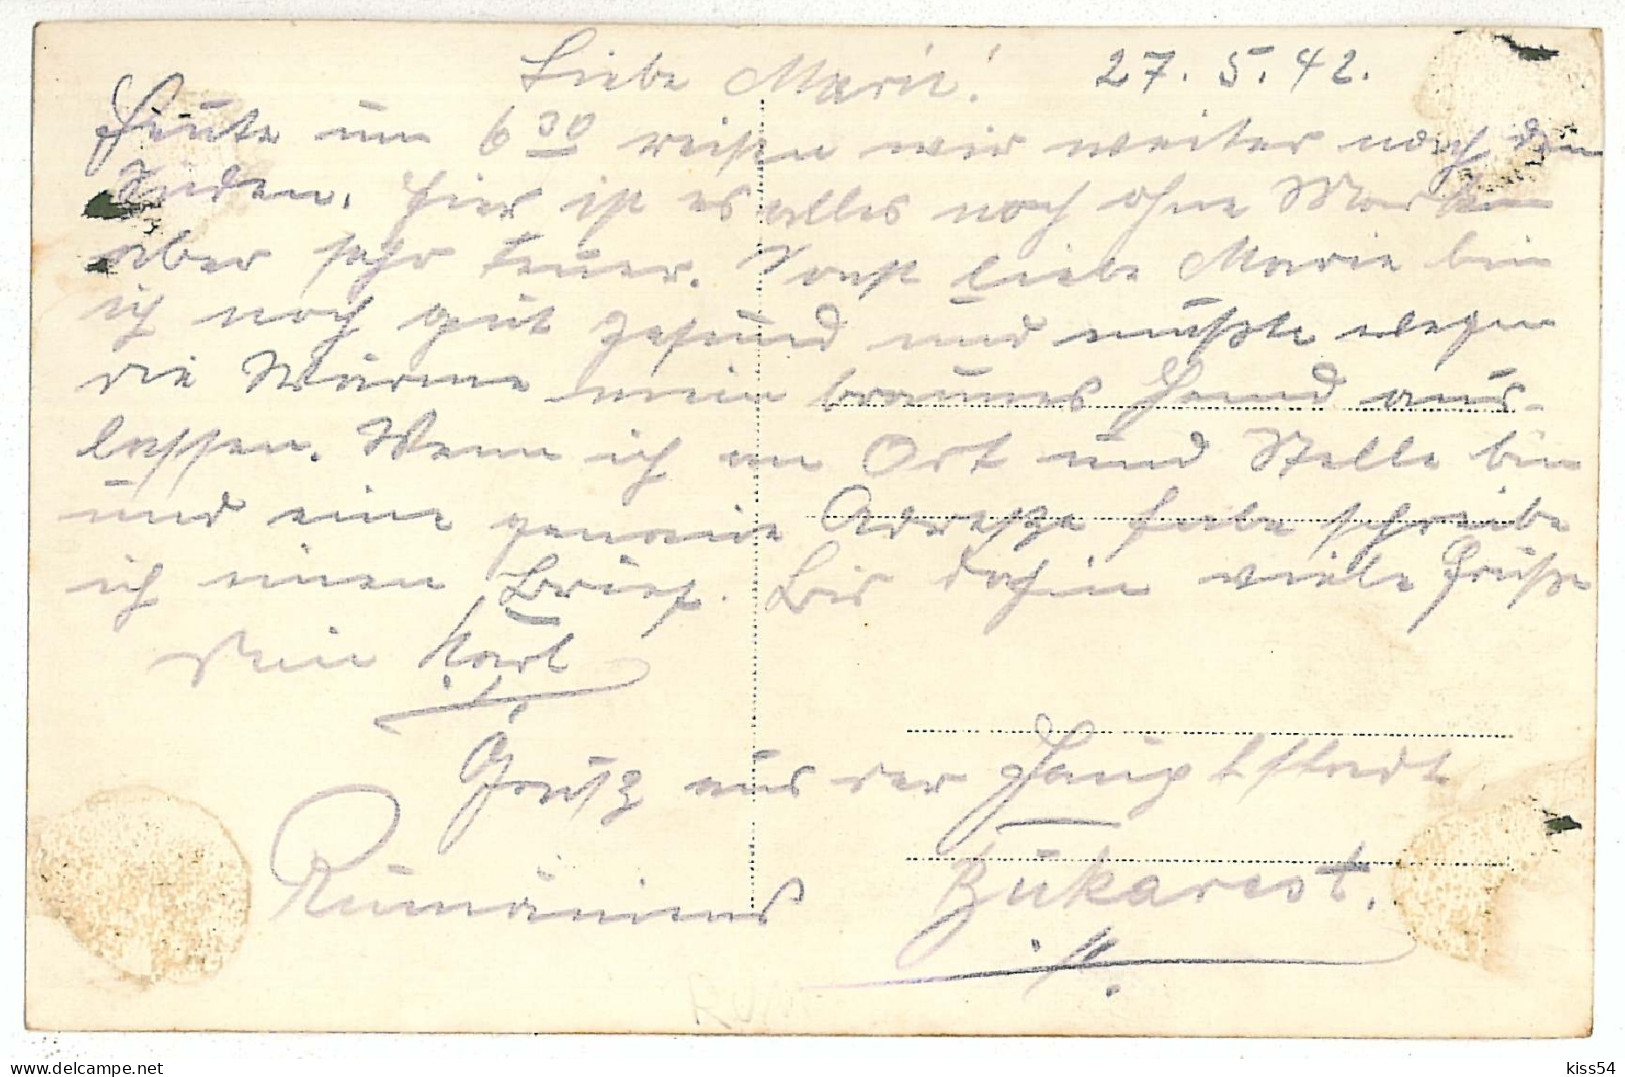 Liebe Marie! 27. 5. 42.
Heute um 6 00 reisen wir weiter nach den
Süden. Hier ist es alles noch ohne Marken
aber sehr teuer. Sonst liebe Marie bin
ich noch gut gesund und mußte wegen
die Wärme mein braunes Hemd aus-
lassen. Wenn ich an Ort und Stelle bin
und eine genaue Adresse habe schreibe
ich einen Brief. Bis dahin viele Grüße
Dein Karl
Gruß aus der Hauptstadt
Rumäniens Bukarest.
kiss54
delcampe.net